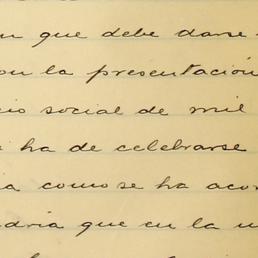 n que debe darse
on la presentación
cio social de mil
a ha de celebrarse
ia como se ha acor
daria que en la